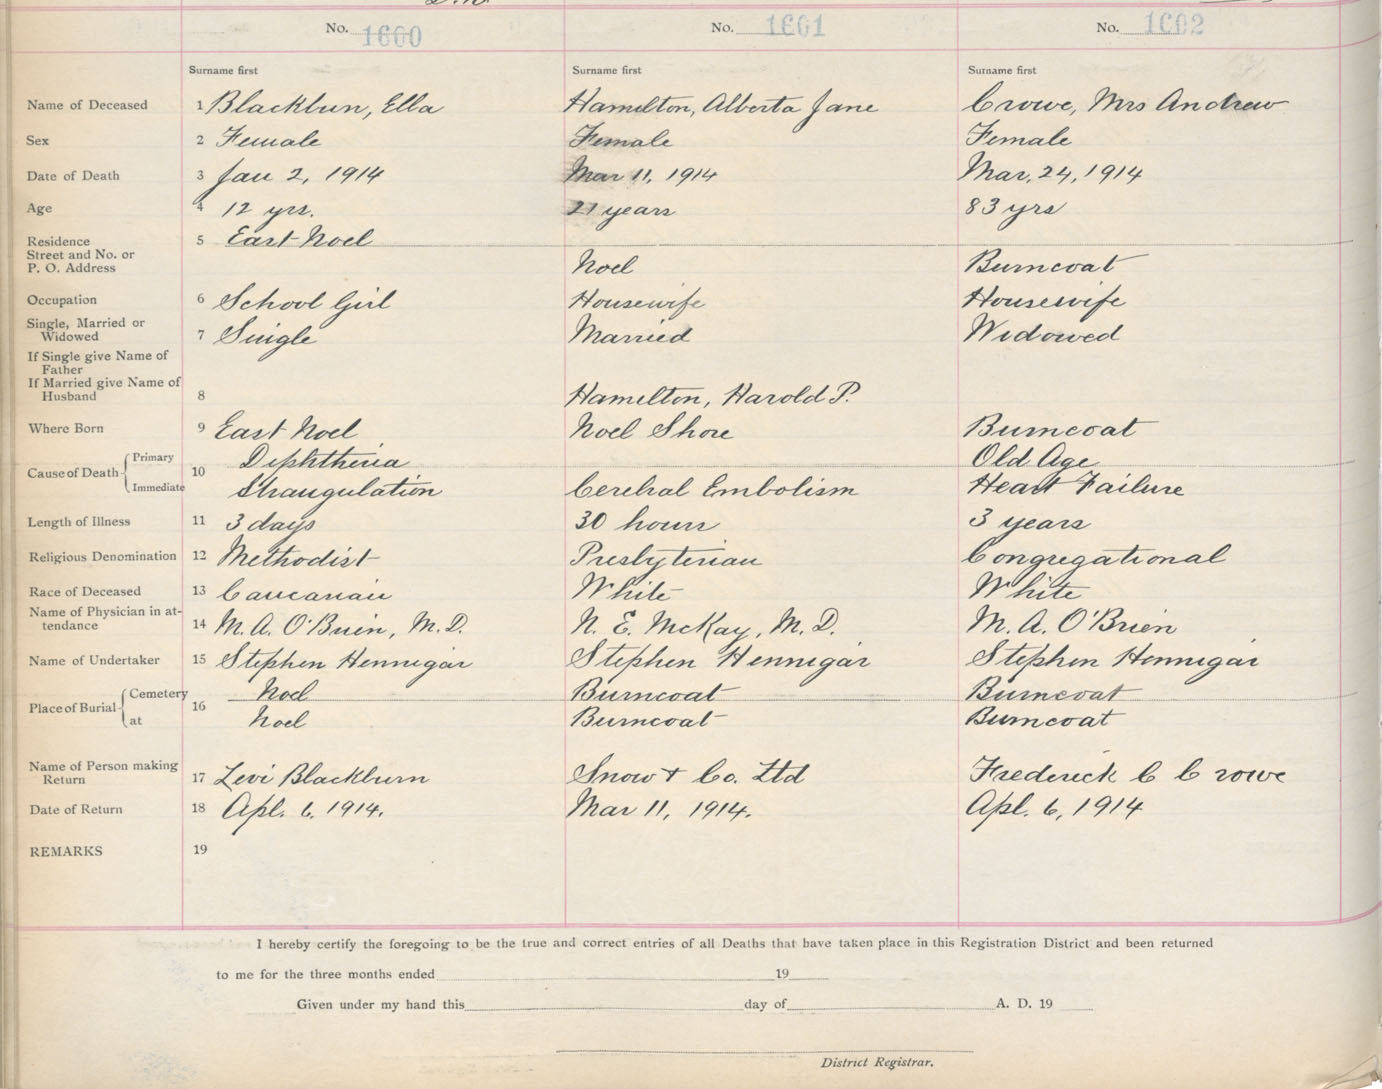 No. 1600 No. 1601 No. 1602
Surname first Surname first Surname first
Name of Deceased 1 Blackburn, Ella Hamilton, Alberta Jane Crowe, Mrs Andrew
Sex 2 Female Female Female
Date of Death 3 Jan 2, 1914 Mar 11, 1914 Mar, 24, 1914
Age 4 12 yrs. 21 years 83 yrs
Residence 5 East Noel
Street and No. or
P. O. Address Noel Burncoat
Occupation 6 School Girl Housewife Housewife
Single, Married or
Widowed 7 Single Married Widowed
If Single give Name of
Father
If Married give Name of
Husband 8 Hamilton, Harold P.
Where Born 9 East Noel Noel Shore Burncoat
Cause of Death Primary 10 Diphtheria Old Age
Immediate Strangulation Cerebral Embolism Heart Failure
Length of Illness 11 3 days 30 hours 3 years
Religious Denomination 12 Methodist Presbyterian Congregational
Race of Deceased 13 Caucasian White White
Name of Physician in at-
tendance 14 M. A. O'Brien, M.D. N. E. McKay, M. D. M. A. O'Brien
Name of Undertaker 15 Stephen Hennigar Stephen Hennigar Stephen Hennigar
Place of Burial Cemetery 16 Noel Burncoat Burncoat
at Noel Burncoat Burncoat
Name of Person making
Return 17 Levi Blackburn Snow & Co. Ltd Frederick C Crowe
Date of Return 18 Apl. 6, 1914. Mar 11, 1914. Apl. 6, 1914
REMARKS 19
I hereby certify the foregoing to be the true and correct entries of all Deaths that have taken place in this Registration District and been returned
to me for the three months ended 19
Given under my hand this day of A. D. 19
District Registrar.